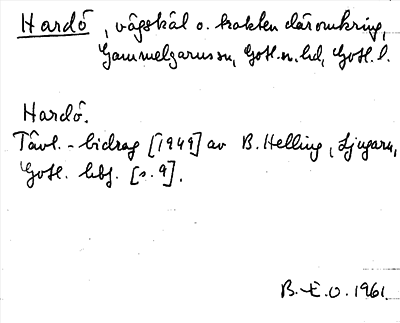 Hardó, vägskäl o. trakten däromkring,
Gammelgarns sn, Gotl. n. hd, Gotl. l.
Hardó.
Tävl.-bidrag [1949] av B. Helling, Ljugarn,
Gotl. hbf. [s. 9].
B. E. O. 1961